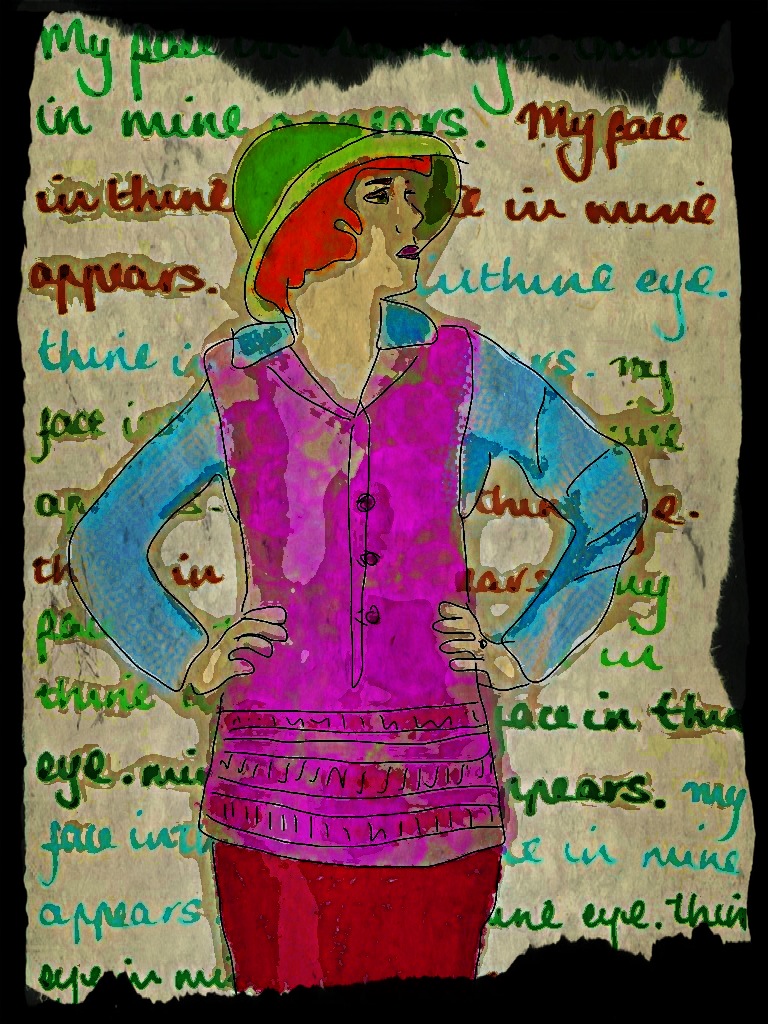 My face in thine eye. thine
in mine appears. My face
in thine e in mine
appears. in thine eye.
thine i rs. my
face i ine
ap s. thin e.
th in ears my
fac in
thine face in thin
eye. min ppears. my
face in th e in mine
appears. ine eye. thin
eye in mi